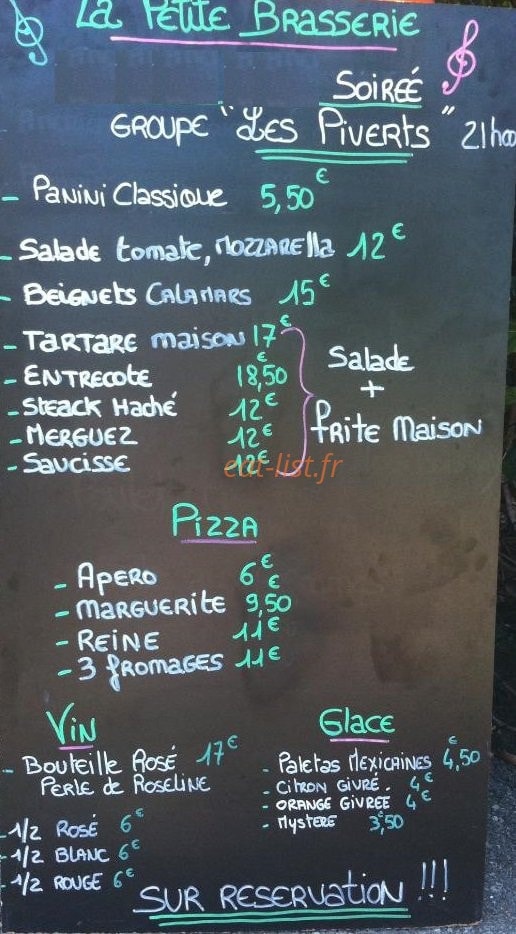 La Petite Brasserie
Soireé
Groupe "Les Piverts" 21h00
- Panini Classique 5,50€
- Salade tomate, mozzarella 12€
- Beignets Calamars 15€
- Tartare maison 17€
- Entrecote 18,50€
- Steack Haché 12€
- Merguez 12€
- Saucisse 12€
Salade
+
frite maison
eat-list.fr
Pizza
- Apero 6€
- Marguerite 9,50€
- Reine 11€
- 3 fromages 11€
Vin
- Bouteille Rosé 17€
Perle de Roseline
- 1/2 Rosé 6€
- 1/2 Blanc 6€
- 1/2 Rouge 6€
Glace
- Paletas Mexicaines 4,50€
- Citron givré. 4€
- Orange givrée 4€
- Mystere 3,50€
Sur reservation !!!